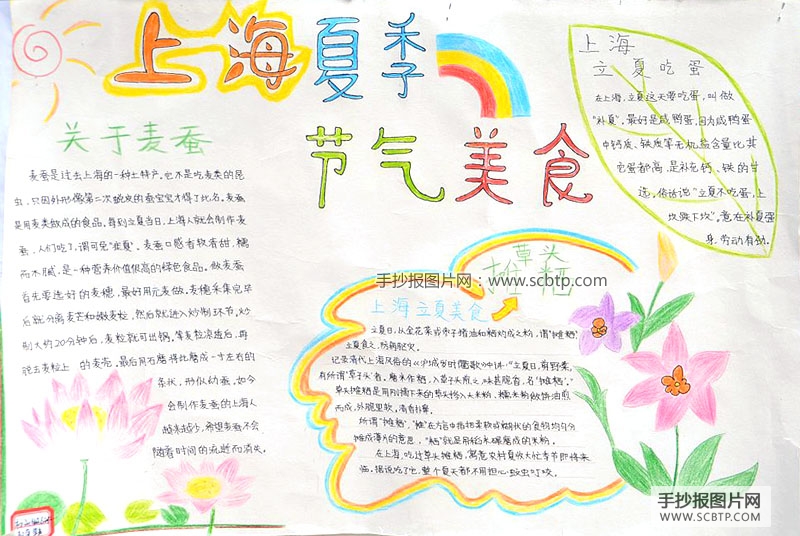 上海夏季
节气美食
关于麦蚕
麦蚕是过去上海的一种土特产。它不是吃麦类的昆
虫，只因外形像第二次蜕皮的蚕宝宝才得了此名。麦蚕
是用麦类做成的食品。每到立夏当日，上海人就会制作麦
蚕，人们吃了，谓可免"疰夏"。麦蚕口感香软清甜，糯
而不腻，是一种营养价值很高的绿色食品。做麦蚕
首先要选好的麦穗，最好用元麦做。麦穗采集完毕
后就分离麦芒和收麦粒，然后就进入炒制环节，炒
制大约20分钟后，麦粒就可出锅。等麦粒凉透后，再
脱去麦粒上的麦壳，最后用石磨将麦磨成一寸左右的
条状，形似幼蚕。如今
会制作麦蚕的上海人
越来越少，希望麦蚕不会
随着时间的流逝而消失。
上海
立夏吃蛋
在上海，立夏这天要吃蛋，叫做
"补夏"，最好是咸鸭蛋，因为咸鸭蛋
中钙质、铁质等无机盐含量比其
它蛋都高，是补充钙、铁的首
选。俗话说："立夏不吃蛋，上
坎跌下坎"。意在补夏强
身，劳动有劲。
草头
摊粞
上海立夏美食
立夏日，从金花菜或枣子猪油和粞灼成之粉，谓"摊粞"
立夏食之，防疰肥灾。
记录清代上海风俗的《沪城岁时衢歌》中讲："立夏日，煎野菜，
有所谓'草子头'者。磨米作粞，入草子头煎之，味甚脆香，名'摊粞'。"
草头摊粞是用刚摘下来的草头掺入大米粉、糯米粉做饼油煎
而成，外脆里软，清香扑鼻。
所谓"摊粞"，"摊"在方言中指把来粉或糊状的食物均匀分
摊成薄片的意思，"粞"就是用稻米碾磨成的米粉。
在上海，吃过草头摊粞，寓意农村夏收大忙季节即将来
临。据说吃了它，整个夏天都不用担心蚊虫叮咬。
手抄报图片网：www.scbtp.com
手抄报图片网
WWW.SCBTP.COM